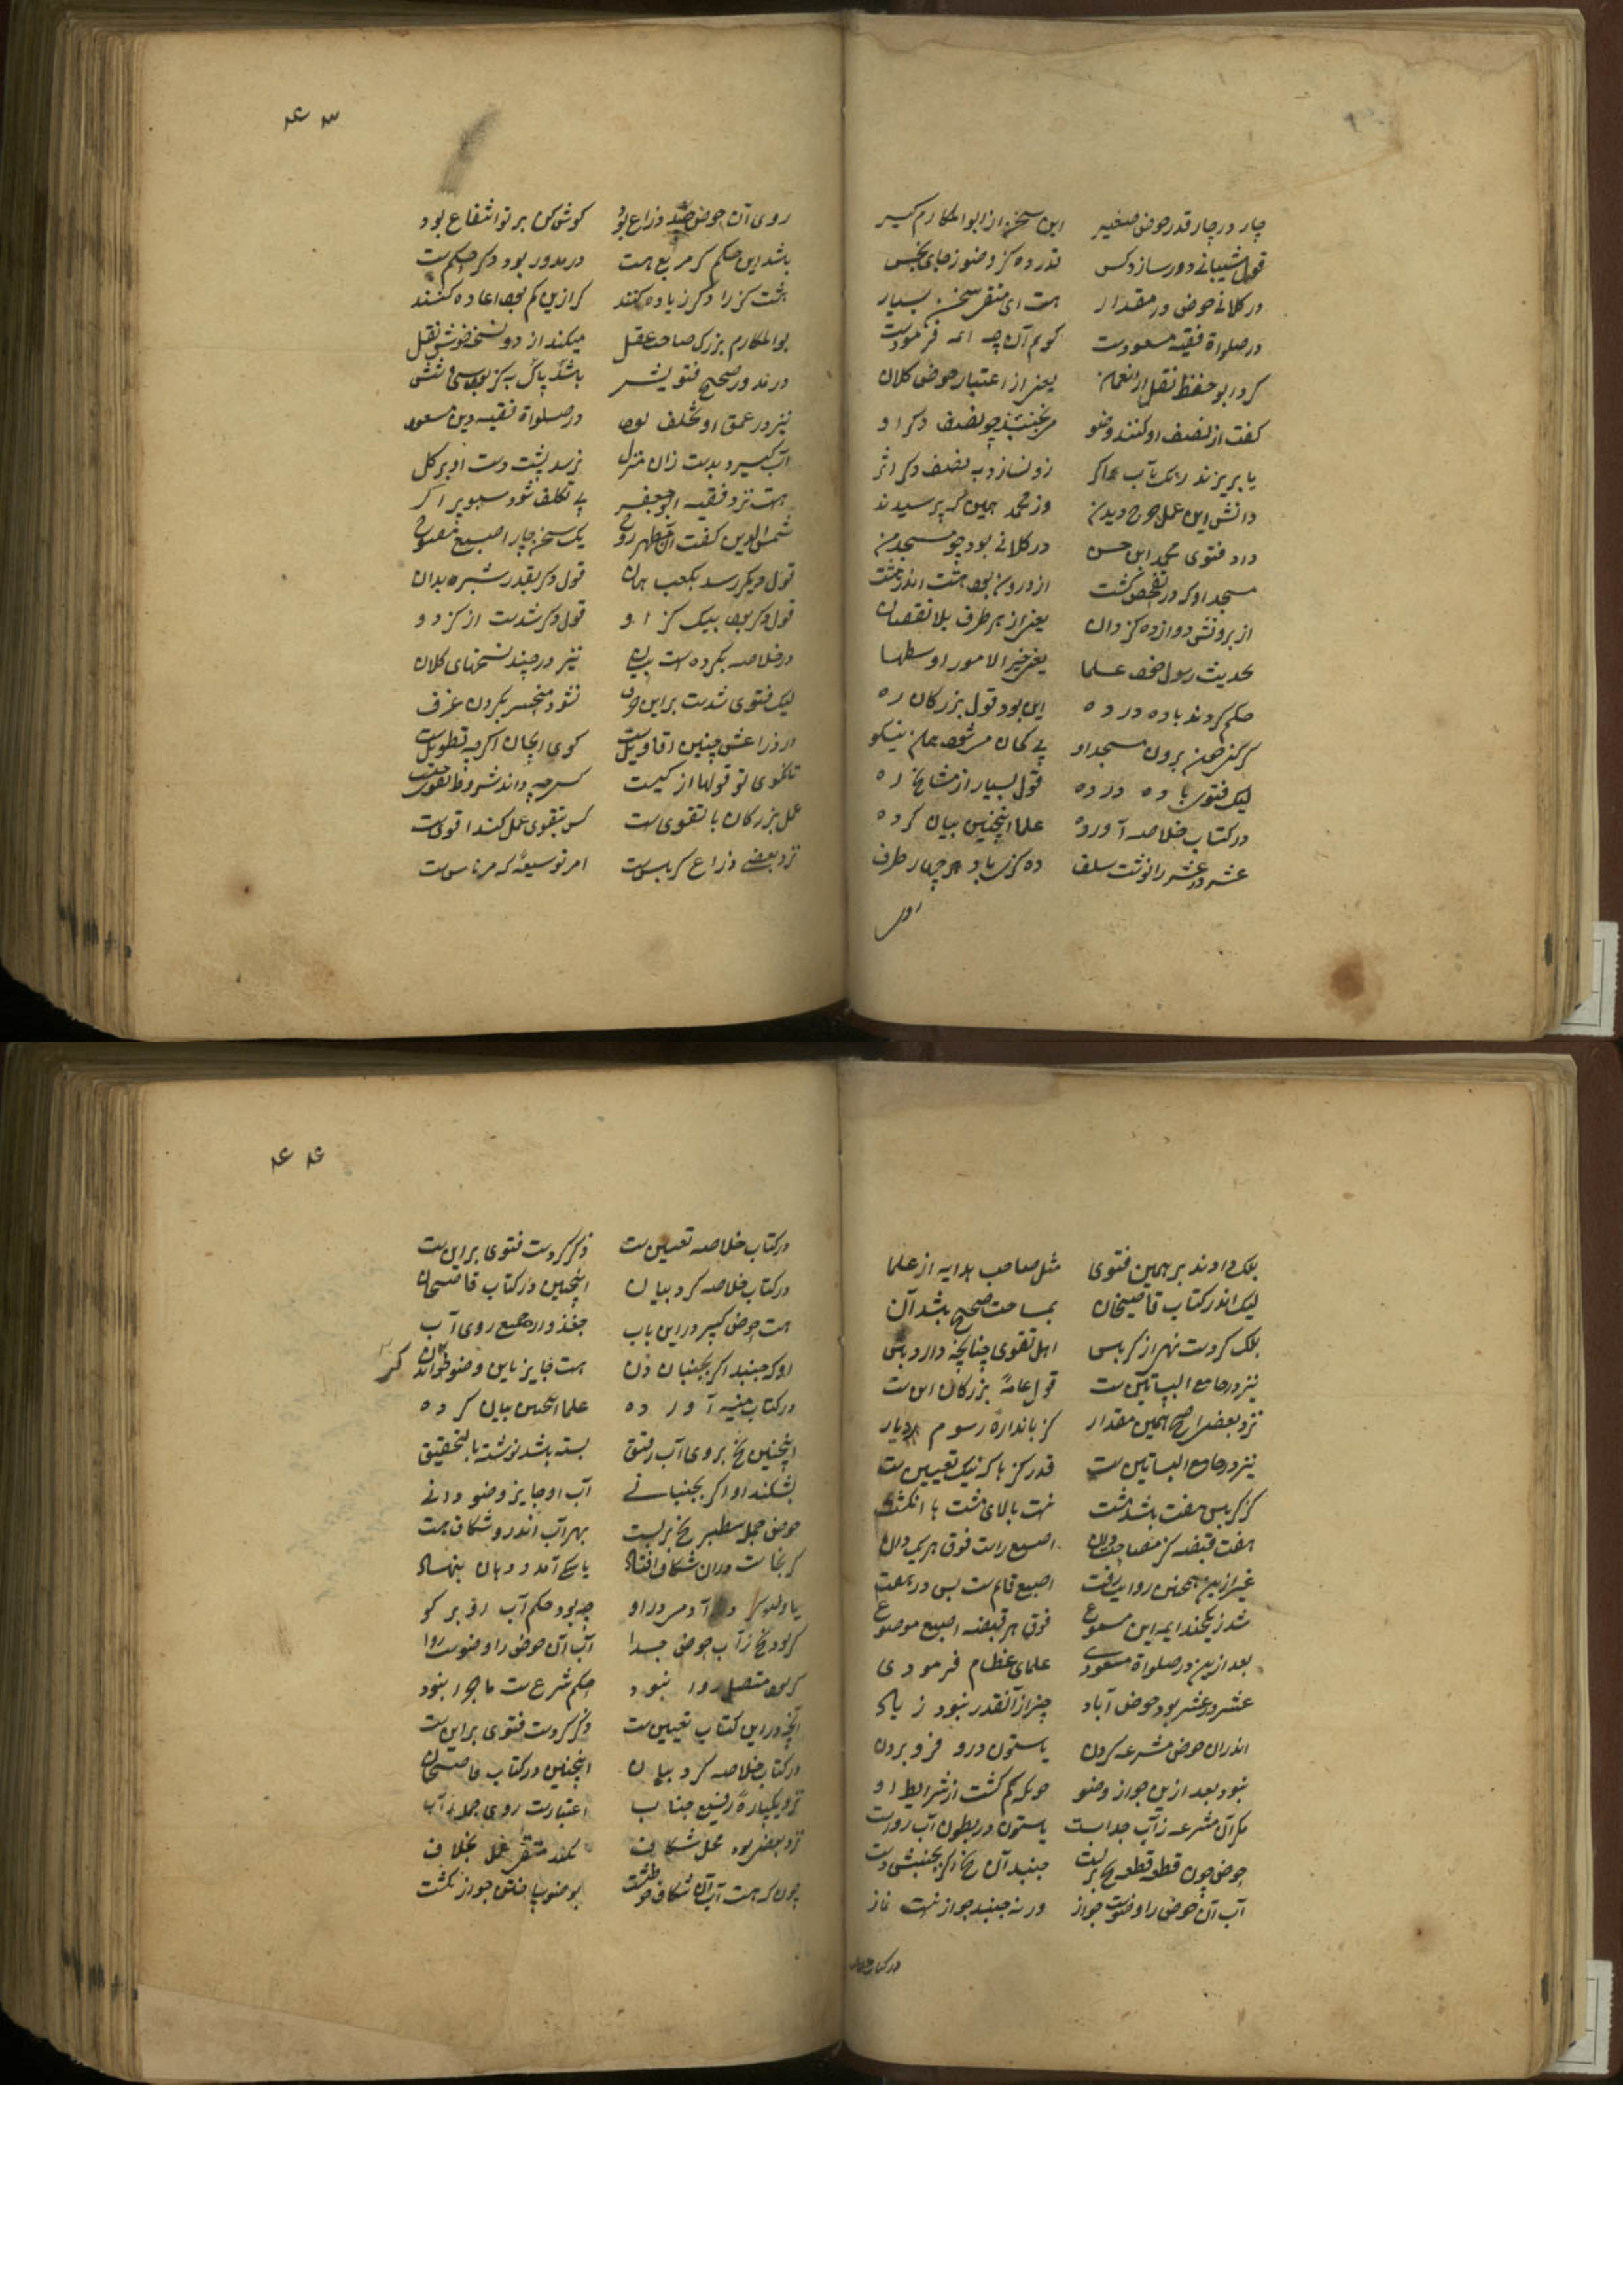 چار در چار قدر حوض صغیر این سخن از ابوالمکارم گیر
قول شیبانی دور سازد کس قدر ده گز وضو ز جای نجس
در کلانی حوض و در مقدار هست ای متقی سخن بسیار
در صلواة فقیه مسعودست گویم آن چه ائمه فرمودست
کرد ابو حفظ نقل از نعمان یعنی از اعتبار حوض کلان
گفت از نصف او کنند وضو می نجنبد چو نصف دگر او
یا بریزند رنگ بآب اگر زو نسازد به نصف دگر اثر
دانش این عمل چو دیدند وز محمد همین که پرسیدند
داد فتوی محمد ابن حسن در کلانی بود چو مسجد من
مسجد او که در تفحص گشت از درون بود هشت اندر هشت
از برونش دوازده گز دان یعنی از هر طرف بلا نقصان
بحدیث رسول علما یعنی خیر الامور اوسطها
حکم کردند با ده در ده این بود قول بزرگان ره
گر کنی برون مسجد او بی گمان نیکو
لیک فتوی با ده در ده قول بسیار از مشایخ ره
در کتاب خلاصه آورده علما اینچنین بیان کرده
عشر در عشر را نوشت سلف ده گزی باد هر چهار طرف
روی
۴۳
روی آن حوض صد ذراع بود گوش کن بر تو انتفاع بود
باشد این حکم گر مربع هست در مدور بود دگر حکم ست
هشت گز را دگر زیاده کنند گر ازین کم بود اعاده کنند
بوالمکارم بزرگ صاحب عقل میکند از دو نسخه خوش نقل
در مدور صحیح فتویش باشد پاک به گز سی و شش
نیز در عمق او تخلف بود در صلواة فقیه دین مسعود
آب گیرد بدست زان منزل نرسد پشت دست او بر گل
هست نزد فقیه ابو جعفر بی تکلف شود سبو پر اگر
شمس الدین گفت آن مطهر روح یک سخن چار اصبع مفتوح
قول دیگر رسد بکعب بدان قول دگر بقدر شبره بدان
قول دگر بود بیک گز او قول دگر شدست از گز دو
در خلاصه بکرده است بیان نیز در چند نسخهای کلان
لیک فتوی شدست بر این حرف نشود منجسر بکردن غرف
در ذراعش چنین اقاویل ست گوی ایجان اگر چه تطویل ست
تا نگوی تو قولها از کیست کس چه داند شروط تقوی چیست
عمل بزرگان با تقوی ست کس بتقوی عمل کند اقوی ست
نزد بعضی ذراع کرباس ست امر توسیعه که مر ناس ست
بلک دادند بر همین فتوی مثل صاحب هدایه از علما
لیک اندر کتاب قاضیخان بمساحت صحیح باشد آن
بلک کردست نهی از کرباس اهل تقوی چنانچه دارد پاس
نیز در جامع البساتین ست قول عامه بزرگان این ست
نزد بعضی اصح همین مقدار گز باندازه رسوم دیار
نیز در جامع البساتین ست قدر گز با که نیک تعیین ست
گز کرباس هفت باشد مشت نیست بالای مشت با انگشت
هفت قبضه گز مساحت دان اصبع راست فوق هر یک دان
غیر ازین همچنین روایت رفت اصبع قائم ست بس در هفت
شد ز یکچند ایمه این مسموع فوق هر قبضه اصبع موضوع
بعد ازین در صلواة مسعودی علمای عظام فرمودی
عشر در عشر بود حوض آباد چیز از آنقدر نبود زیاد
اندران حوض مشرعه کردن یا ستون درو فرو بردن
نبود بعد ازین جواز وضو چونکه کم گشت از شرایط او
مگر آن مشرعه ز آب جداست یا ستون در بطون آب رواست
حوض چون قطعه قطعه یخ بر بست جنبد آن یخ اگر بجنبش دست
آب آن حوض را وضوست جواز ور نه جنبد جواز نیست نماز
در کتاب خلاصه
۴۴
در کتاب خلاصه تعیین ست ذکر کردست فتوی بر این ست
در کتاب خلاصه کرد بیان اینچنین در کتاب قاضیخان
هست حوض کبیر در این باب جغد وارد جمیع روی آب
او که جنبد اگر بجنبان دن هست جایز باین وضو خواندن
در کتاب منیه آورده علما اینچنین بیان کرده
اینچنین یخ بروی آب رقیق بسته باشد نوشته بالتحقیق
بشکند او اگر بجنبانی آب او جایز وضو دانی
حوض جمله سطبر یخ بر بست بهر آب اندرو شکاف هست
گر نجاست دران شکاف افتاد یا سگی آمد و دهان بنهاد
یا در آمد و مرد در او چه بود حکم آب او بر گو
گر بود یخ ز آب حوض جدا آب آن حوض را وضوست روا
گر بود متصل روا نبود حکم شرع ست ماجرا نبود
آنچه در این کتاب تعیین ست ذکر کردست فتوی بر این ست
در کتاب خلاصه کرد بیان اینچنین در کتاب قاضیخان
نزد یکپاره رفیع جناب اعتبارست روی جمله آب
نزد بعضی بود محل شکاف نکند متقی عمل بخلاف
چون که هست آب آن شکاف چو طشت بوضو ساختن جواز نگشت